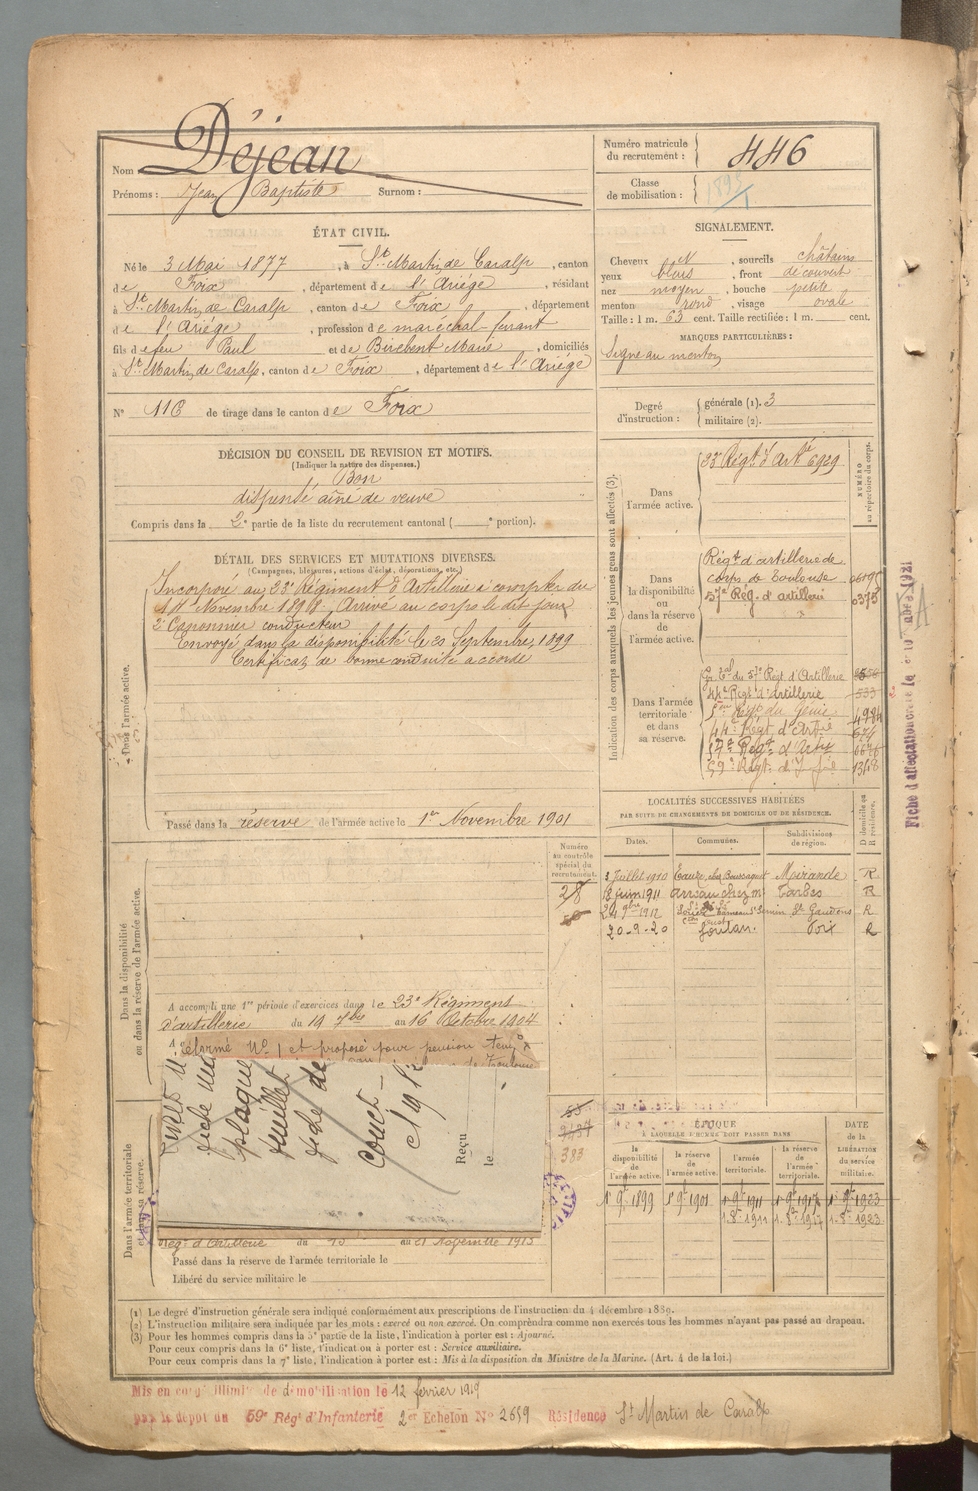 Nom : Déjean
Prénoms : Jean Baptiste Surnom :
Numéro matricule du recrutement : 446
Classe de mobilisation : 1895
ÉTAT CIVIL.
Né le 3 Mai 1877, à St Martin de Caralp, canton
de Foix, département de l'Ariège, résidant
à St Martin de Caralp, canton de Foix, département
de l'Ariége, profession de maréchal-ferrant
fils de feu Paul et de Birebent Marie, domiciliés
à St Martin de Caralp, canton de Foix, département de l'Ariége
N° 116 de tirage dans le canton de Foix
SIGNALEMENT.
Cheveux N, sourcils châtains
yeux bleus, front découvert
nez moyen, bouche petite
menton rond, visage ovale
Taille : 1 m. 63 cent. Taille rectifiée : 1 m. cent.
MARQUES PARTICULIÈRES :
Signe au menton
Degré d'instruction : générale (1). 3
militaire (2).
DÉCISION DU CONSEIL DE REVISION ET MOTIFS.
(Indiquer la nature des dispenses.)
Bon
dispensé aîné de veuve
Compris dans la 2e partie de la liste du recrutement cantonal ( e portion).
DÉTAIL DES SERVICES ET MUTATIONS DIVERSES.
(Campagnes, blessures, actions d'éclat, décorations, etc.)
Dans l'armée active.
Incorporé au 23e Régiment d'Artillerie à compter du
14 Novembre 1898. Arrivé au corps le dit jour
2e Canonnier conducteur
Envoyé dans la disponibilité le 20 Septembre 1899
Certificat de bonne conduite accordé
Passé dans la réserve de l'armée active le 1er Novembre 1901
Indication des corps auxquels les jeunes gens sont affectés (3).
NUMÉRO au répertoire du corps.
Dans l'armée active.
23e Régt d'Artie 6929
Dans la disponibilité ou dans la réserve de l'armée active.
Régt d'artillerie de
corps de Toulouse
57e Rég. d'artillerie 0375
Dans l'armée territoriale et dans sa réserve.
Gr Tal du 57e Régt d'Artillerie
44e Régt d'artillerie 533
Régt du Génie 4984
44e Régt d'Artie 674
57e Régt d'Artie
59e Régt d'Infie 1348
Fiche d'affectation
LOCALITÉS SUCCESSIVES HABITÉES
PAR SUITE DE CHANGEMENTS DE DOMICILE OU DE RÉSIDENCE.
Dates. Communes. Subdivisions de région. D domicile ou R résidence.
3 Juillet 1910 Eauze, chez Boussaguet Mirande R
18 juin 1911 Tarbes R
24 9bre 1912 St Gaudens R
20-9-20 Foix R
Dans la disponibilité ou dans la réserve de l'armée active.
Numéro au contrôle spécial du recrutement.
28
A accompli une 1re période d'exercices dans le 23e Régiment
d'artillerie du 19 7bre au 16 Octobre 1904
Réformé N° 1 et proposé pour pension
de Toulouse
fiche
plaque
feuillet
fiche de
Reçu
le
383
Dans l'armée territoriale et dans sa réserve.
Régt d'Artillerie du au 21 Novembre 1913
Passé dans la réserve de l'armée territoriale le
Libéré du service militaire le
ÉPOQUE
À LAQUELLE L'HOMME DOIT PASSER DANS
la disponibilité de l'armée active. la réserve de l'armée active. l'armée territoriale. la réserve de l'armée territoriale.
DATE de la LIBÉRATION du service militaire.
1er 9bre 1899 1er 9bre 1901 1er 9bre 1911 1er 9bre 1917 1er 9bre 1923
1-8bre 1911 1-8bre 1917 1-8bre 1923
(1) Le degré d'instruction générale sera indiqué conformément aux prescriptions de l'instruction du 4 décembre 1889.
(2) L'instruction militaire sera indiquée par les mots : exercé ou non exercé. On comprendra comme non exercés tous les hommes n'ayant pas passé au drapeau.
(3) Pour les hommes compris dans la 5e partie de la liste, l'indication à porter est : Ajourné.
Pour ceux compris dans la 6e liste, l'indication à porter est : Service auxiliaire.
Pour ceux compris dans la 7e liste, l'indication à porter est : Mis à la disposition du Ministre de la Marine. (Art. 4 de la loi.)
Mis en congé illimité de démobilisation le 12 fevrier 1919
par le dépôt du 59e Rég' d'Infanterie 2er Echelon N° 2659 Résidence St Martin de Caralp